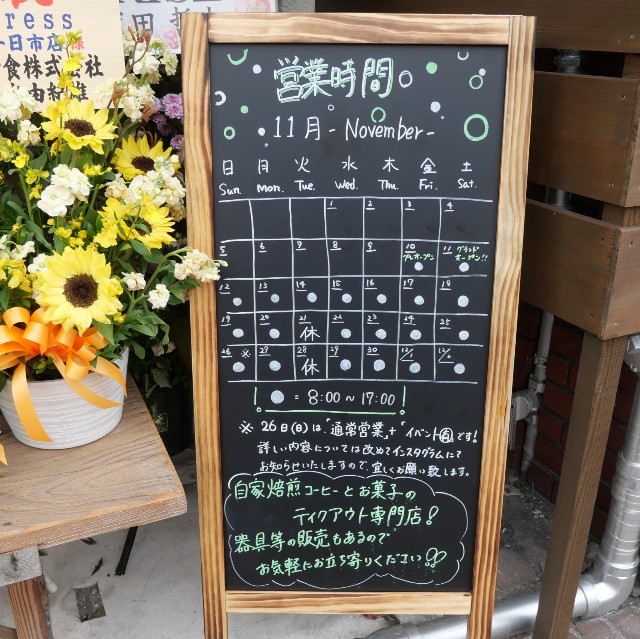 ress
一日市店様
食株式会社
営業時間
11月 - November -
日 月 火 水 木 金 土
Sun. Mon. Tue. Wed. Thu. Fri. Sat.
1 2 3 4
5 6 7 8 9 10 プレオープン 11 グランドオープン!!
12 13 14 15 16 17 18
19 20 21 休 22 23 24 25
26 ※ 27 28 休 29 30 12/1 12/2
! ● = 8:00～17:00 !
※ 26日(日)は、「通常営業」+「イベント有」です!
詳しい内容については改めてインスタグラムにて
お知らせいたしますので、宜しくお願い致します。
自家焙煎コーヒーとお菓子の
テイクアウト専門店!
器具等の販売もあるので
お気軽にお立ち寄りください!!